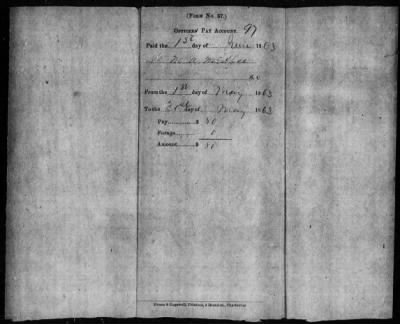 (FORM No. 37.)
OFFICERS' PAY ACCOUNT. 97
Paid the 1st day of June 1863
S. C.
From the 1st day of May 1863
To the 31st day of May 1863
Pay............ $ 80
Forage........ 0
Amount...... $ 80
Evans & Cogswell, Printers, 3 Broad-st., Charleston